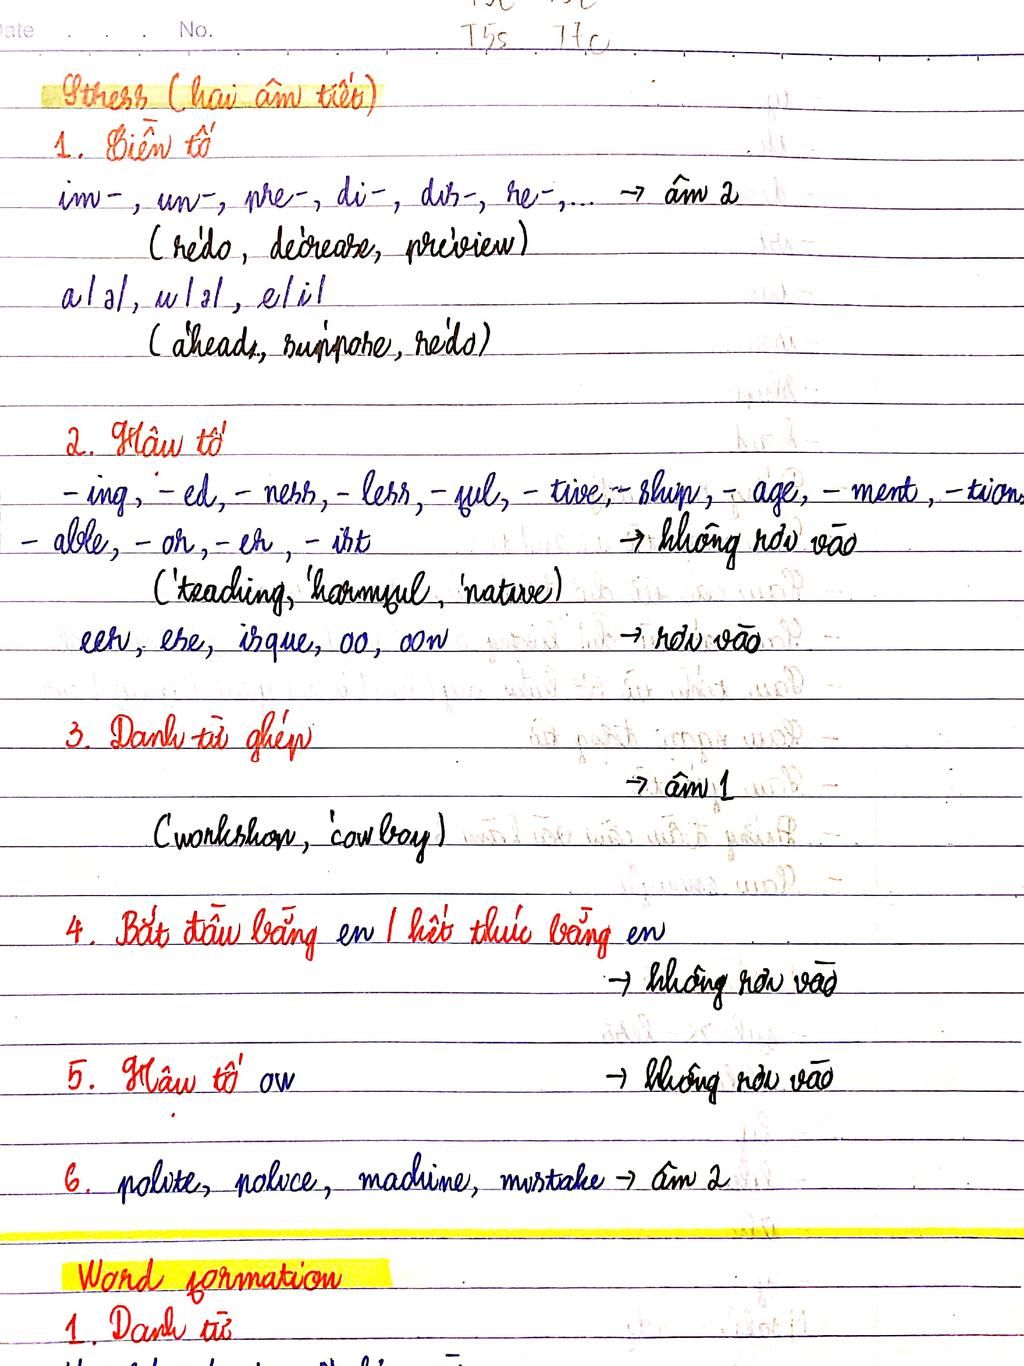 Date . . . No.
T5s T7c
Stress (hai âm tiết)
1. Tiền tố
im-, un-, pre-, di-, dis-, re-,... → âm 2
(re'do, de'crease, pre'view)
a/ə/, u/ə/, e/i/
(a'head, su'ppose, re'do)
2. Hậu tố
-ing, -ed, -ness, -less, -ful, -tive, -ship, -age, -ment, -tion,
-able, -or, -er, -ist → không rơi vào
('teaching, 'harmful, 'native)
eer, ese, isque, oo, oon → rơi vào
3. Danh từ ghép
→ âm 1
('workshop, 'cowboy)
4. Bắt đầu bằng en / kết thúc bằng en
→ không rơi vào
5. Hậu tố ow → không rơi vào
6. polite, police, machine, mistake → âm 2
Word formation
1. Danh từ